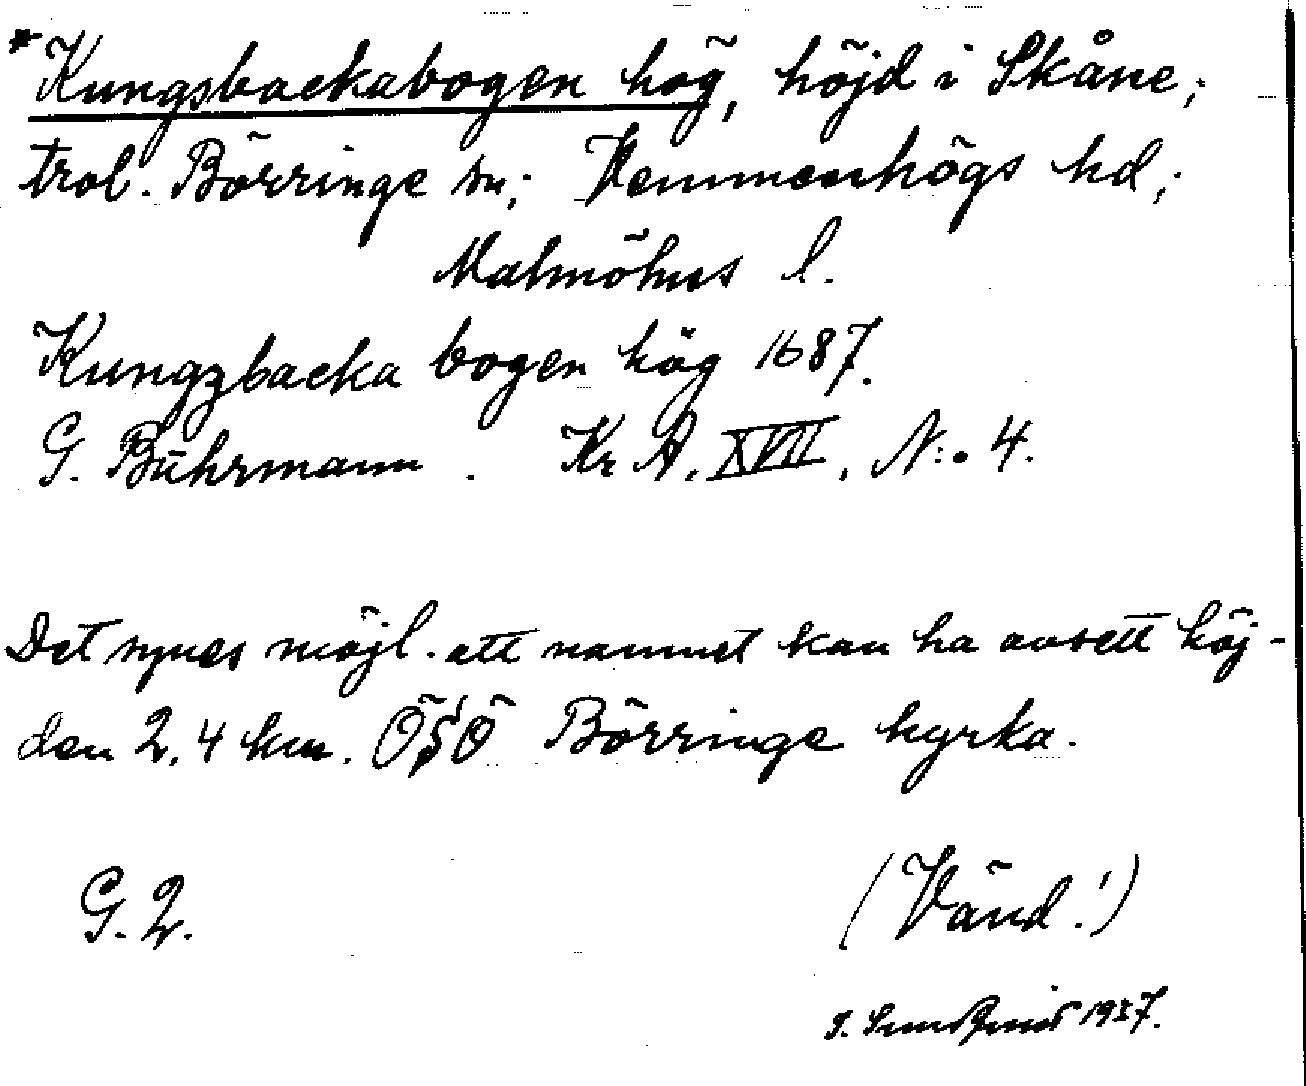 *Kungsbackabogen hög, höjd i Skåne;
trol. Börringe sn; Vemmenhögs hd;
Malmöhus l.
Kungzbacka bogen hög 1687.
G. Buhrmann. Kr A. XVII, N:o 4.
Det synes möjl. att namnet kan ha avsett höj-
den 2,4 km. ÖSÖ Börringe kyrka.
G. 2.
(Vänd!)
I. 1937.